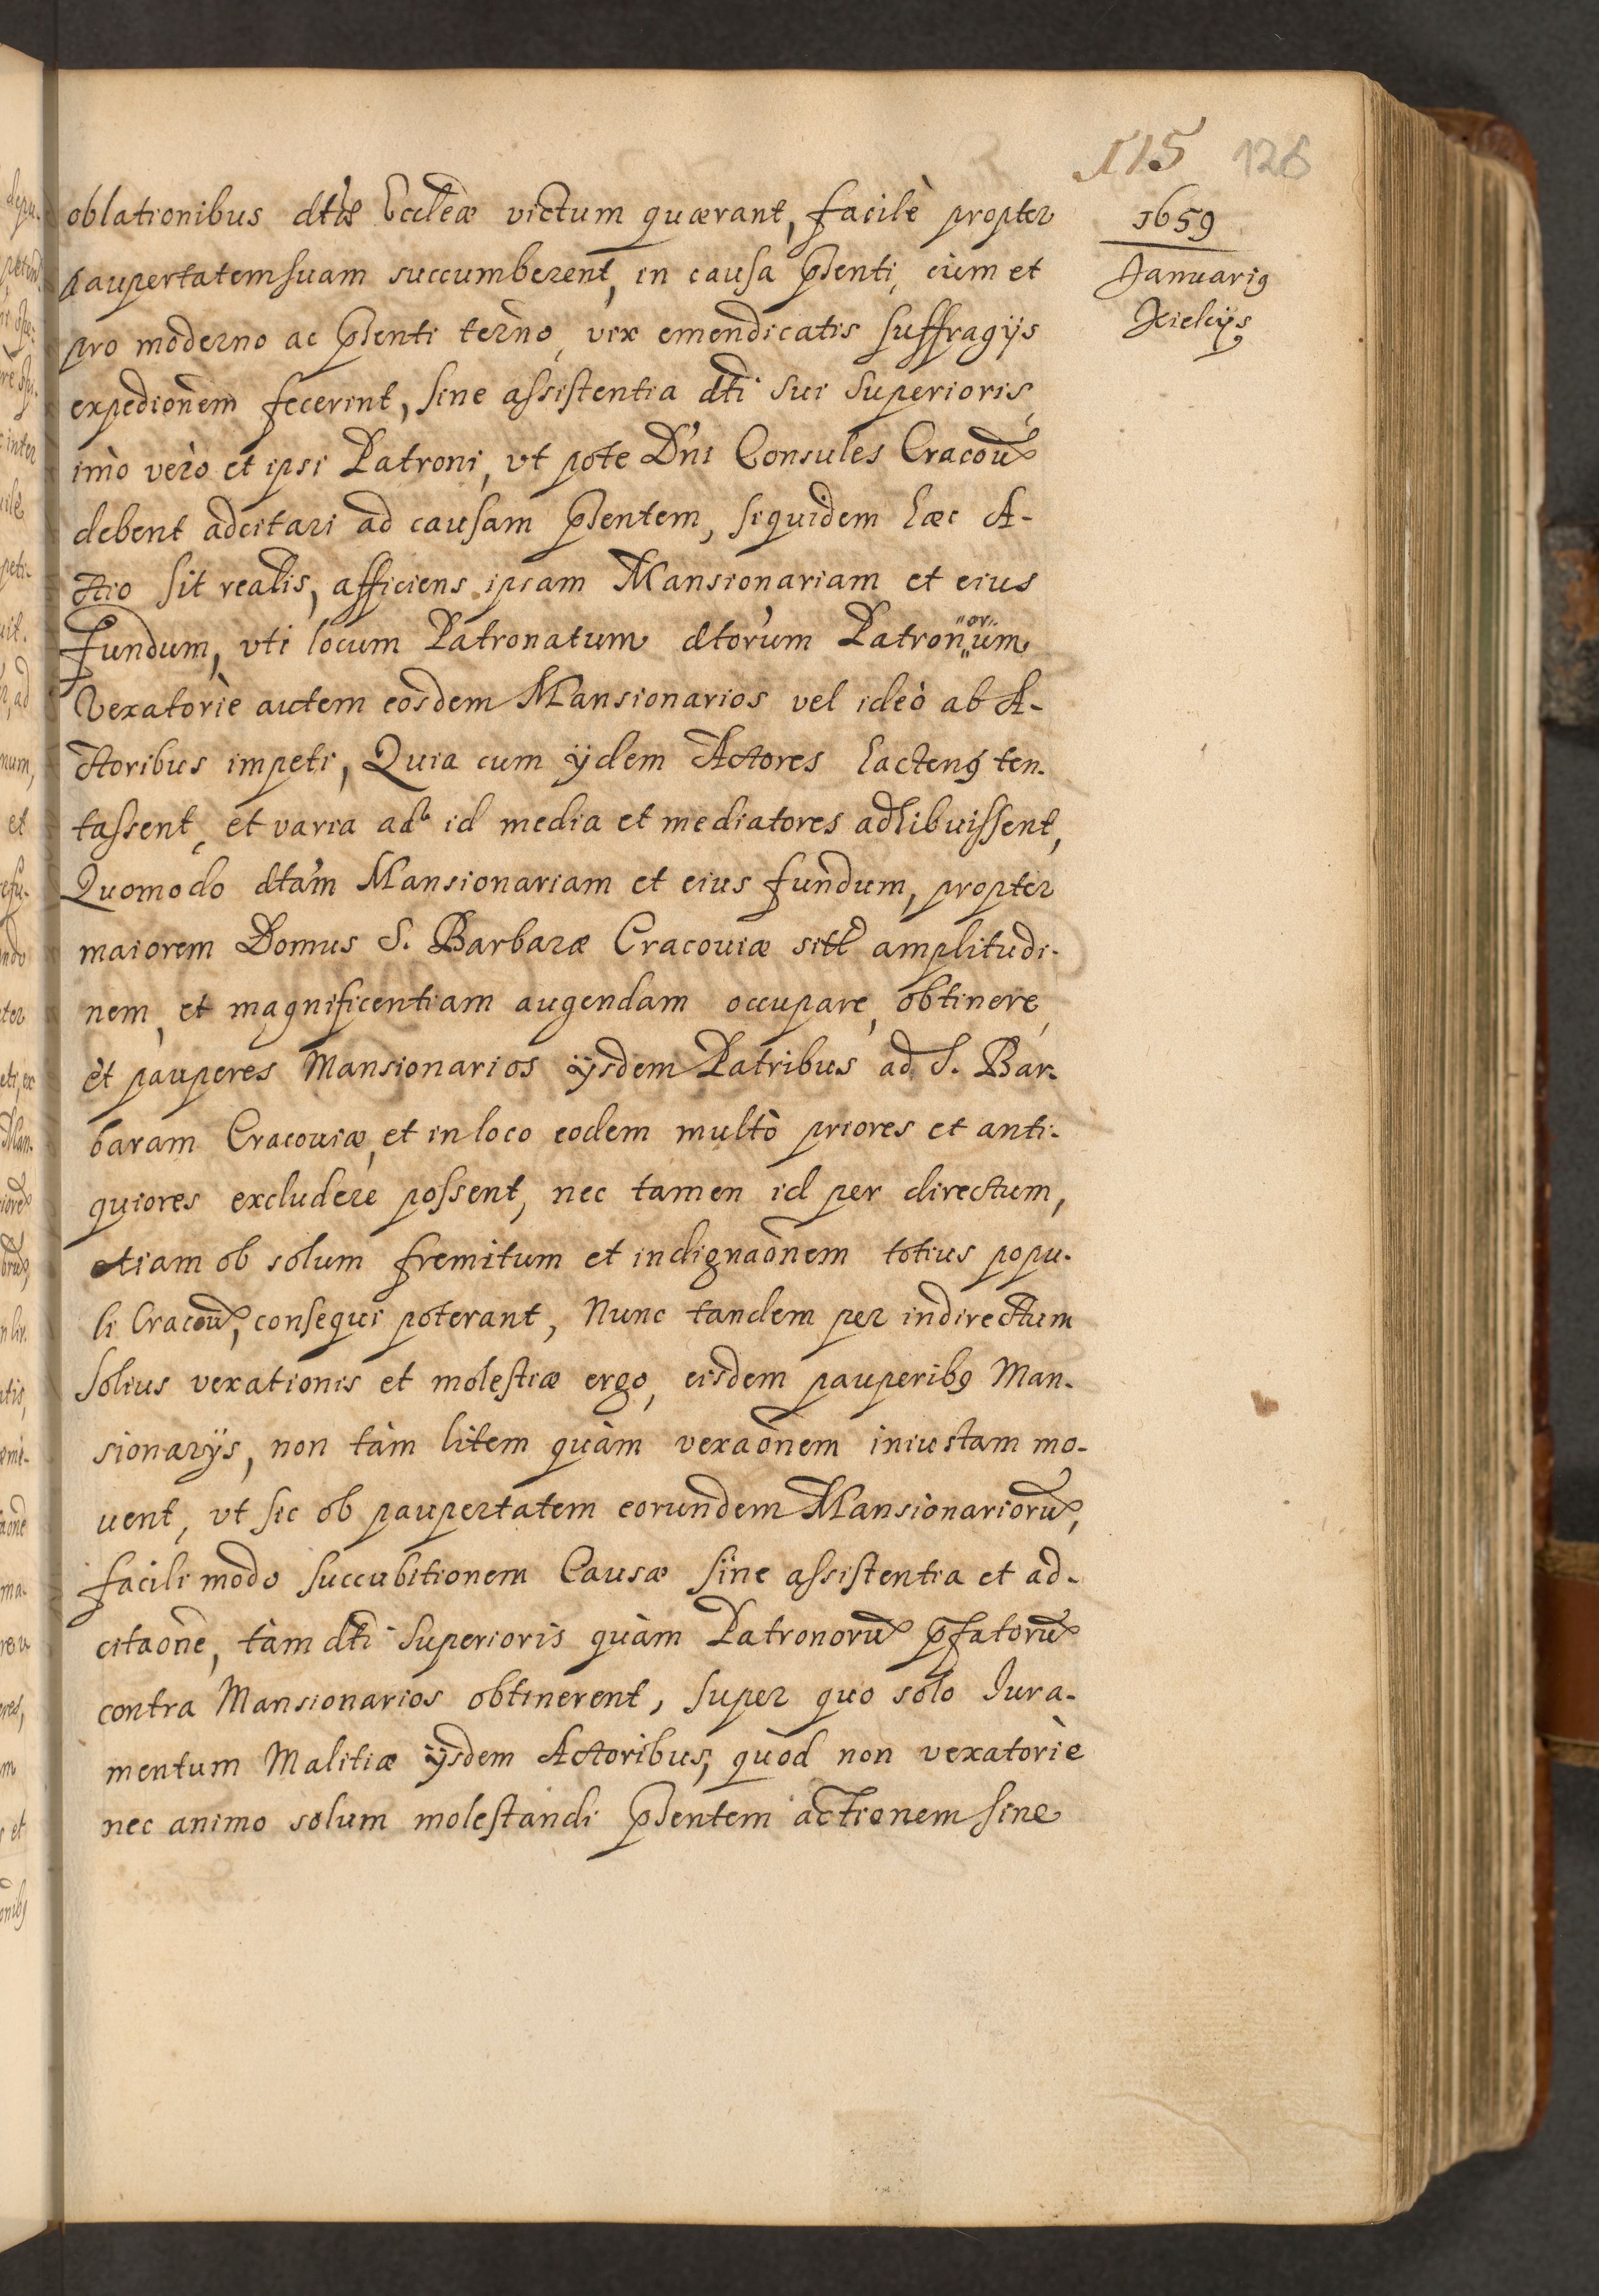 115 126
1659
Januarig
Kielcijs
oblationibus dtæ Eccleæ victum quærant, facilè propter
paupertatem suam succumberent, in causa pñsenti, cùm et
pro moderno ac pñsenti ter̃no, vix emendicatis suffragijs
expedionẽm fecerint, sine assistentia dti sui Superioris,
imò verò et ipsi Patroni, vt pote Dñi Consules Cracou
debent adcitari ad causam pñsentem, siquidem hæc A-
ctio sit realis, afficiens ipsam Mansionariam et eius
fundum, vti locum Patronatum dtorum Patron"or"um
Vexatoriè autem eosdem Mansionarios vel ideò ab A-
ctoribus impeti, Quia cum ijdem Actores hacteng ten-
tassent, et varia ad id media et mediatores adhibuissent,
Quomodo dtam Mansionariam et eius fundum, propter
maiorem Domus S. Barbaræ Cracouiæ sitt amplitudi-
nem, et magnificentiam augendam occupare, obtinere,
et pauperes Mansionarios ijsdem Patribus ad S. Bar-
baram Cracouiæ, et in loco eodem multò priores et anti-
quiores excludere possent, nec tamen id per directum,
etiam ob solum fremitum et indignaõnem totius popu-
li Cracou, consequi poterant, Nunc tandem per indirectum
solius vexationis et molestiæ ergo, eisdem pauperibg Man-
sionarijs, non tàm litem quàm vexaõnem iniustam mo-
uent, vt sic ob paupertatem eorundem Mansionariorũ,
facili modo succubitionem Causæ sine assistentia et ad-
citaõne, tàm dti Superioris quàm Patronorũ pfatorũ
contra Mansionarios obtinerent, super quo solo Jura-
mentum Malitiæ ijsdem Actoribus, quòd non vexatoriè
nec animo solum molestandi pñsentem actionem sine